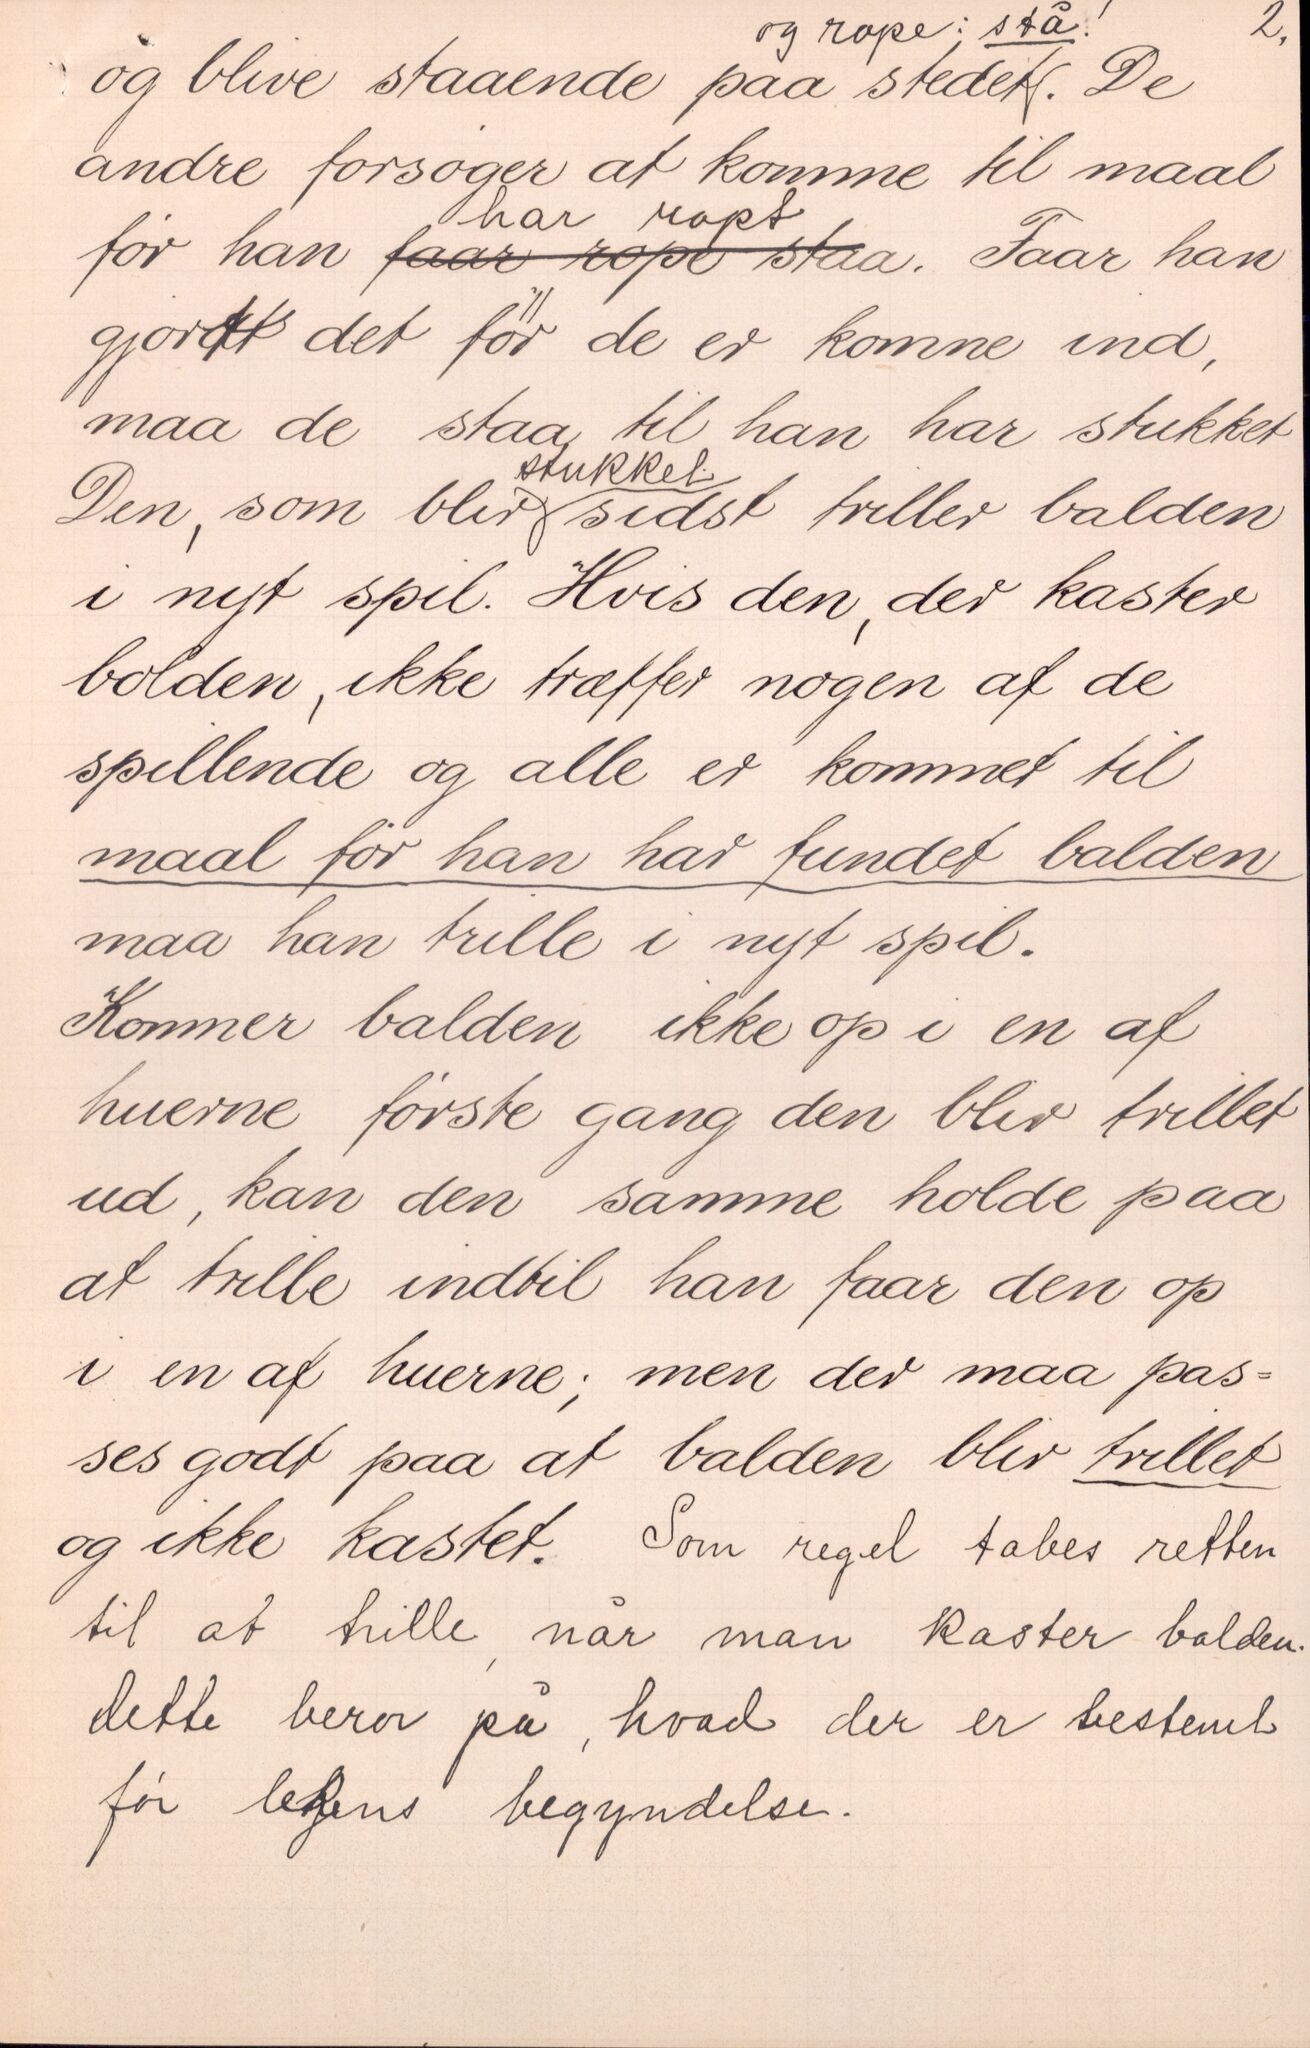 og rope: stå! 2.
og blive staaende paa stedet. De
andre forsøger at komme til maal
har ropt
før han faar rope staa. Faar han
gjort det før de er komne ind,
maa de staa, til han har stukket
stukket
Den, som blir sidst triller balden
i nyt spil. Hvis den, der kaster
bolden, ikke træffer nogen af de
spillende og alle er kommet til
maal før han har fundet balden
maa han trille i nyt spil.
Kommer balden ikke op i en af
huerne første gang den blir trillet
ud, kan den samme holde paa
at trille indtil han faar den op
i en af huerne; men der maa pas=
ses godt paa at balden blir trillet
og ikke kastet. Som regel tabes retten
til at trille, når man kaster balden.
Dette beror på, hvad der er bestemt
før lekens begyndelse.